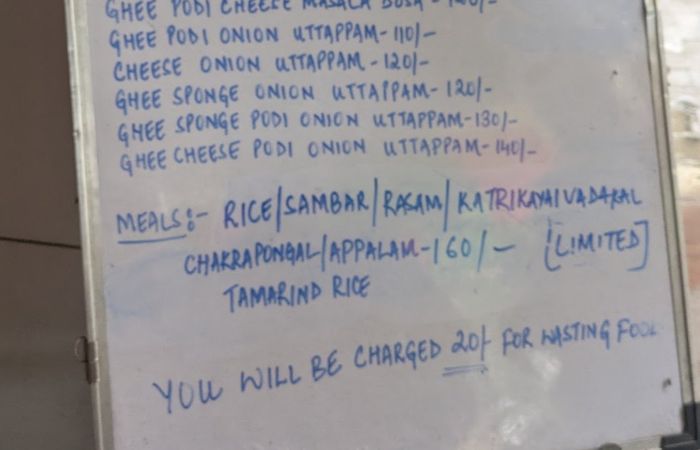 GHEE PODI CHEESE MASALA DOSA -
GHEE PODI ONION UTTAPPAM-110/-
CHEESE ONION UTTAPPAM -120/-
GHEE SPONGE ONION UTTAPPAM- 120/-
GHEE SPONGE PODI ONION UTTAPPAM-130/-
GHEE CHEESE PODI ONION UTTAPPAM-140/-
MEALS:- RICE/SAMBAR/RASAM/KATRIKAYAIVADAKAL
CHAKRAPONGAL/APPALAM-160/- [LIMITED]
TAMARIND RICE
YOU WILL BE CHARGED 20/- FOR WASTING FOOD